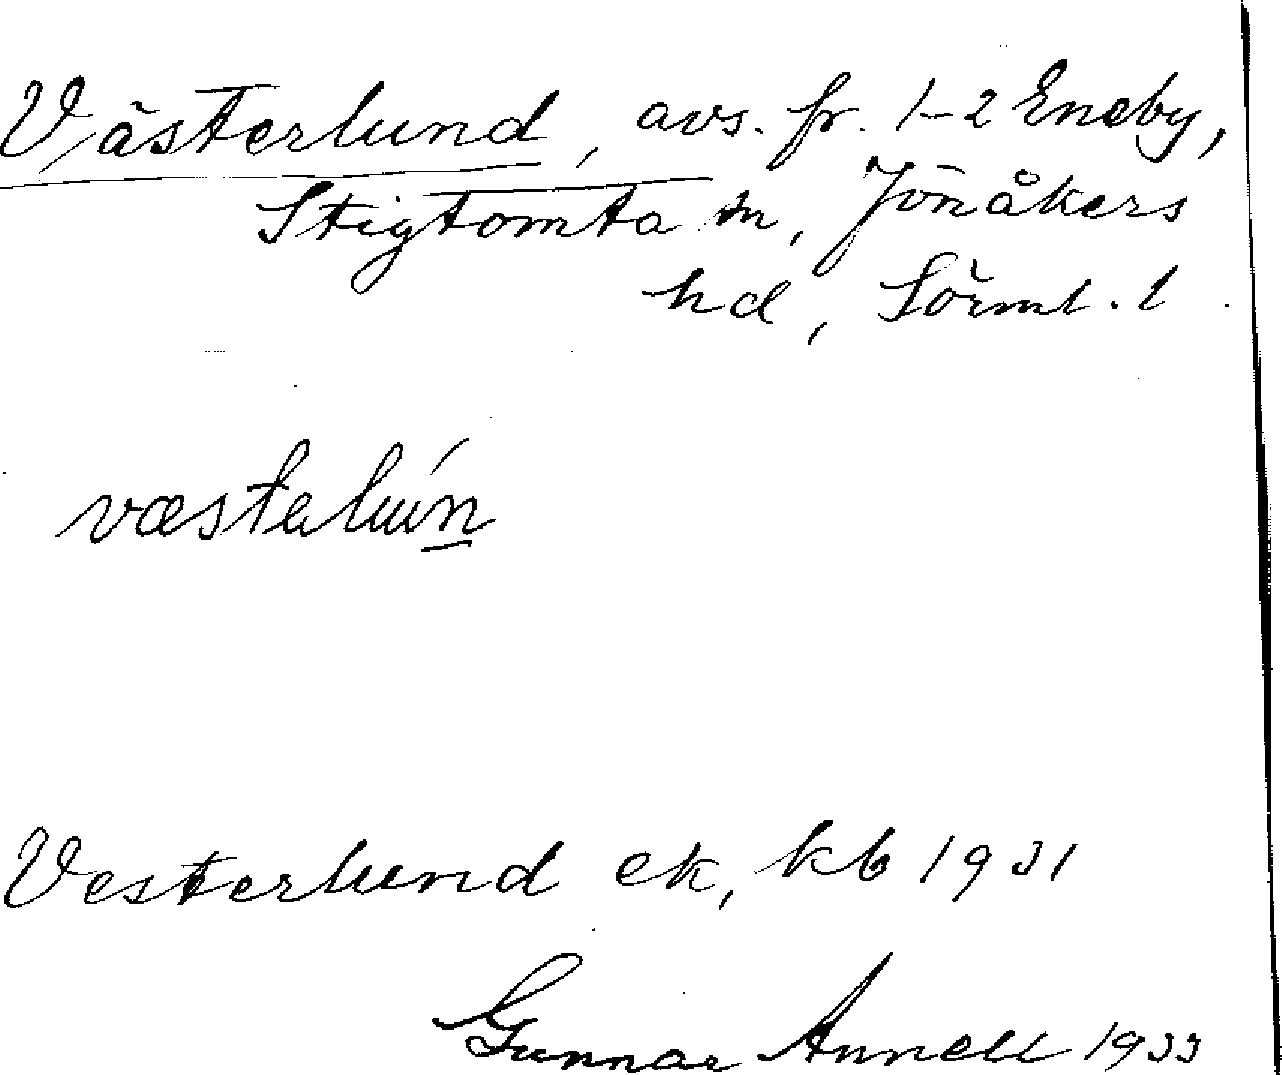 Västerlund, avs. fr. 1-2 Eneby,
Stigtomta sn, Jönåkers
hd, Sörml. l
Vesterlund ek, kb 1931
Gunnar Annell 1933